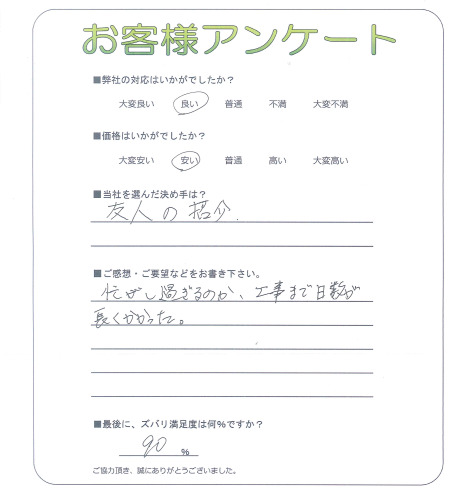 お客様アンケート
■弊社の対応はいかがでしたか？
大変良い　良い　普通　不満　大変不満
■価格はいかがでしたか？
大変安い　安い　普通　高い　大変高い
■当社を選んだ決め手は？
友人の紹介.
■ご感想・ご要望などをお書き下さい。
忙がし過ぎるのか、工事まで日数が
長くかかった。
■最後に、ズバリ満足度は何％ですか？
90 ％
ご協力頂き、誠にありがとうございました。